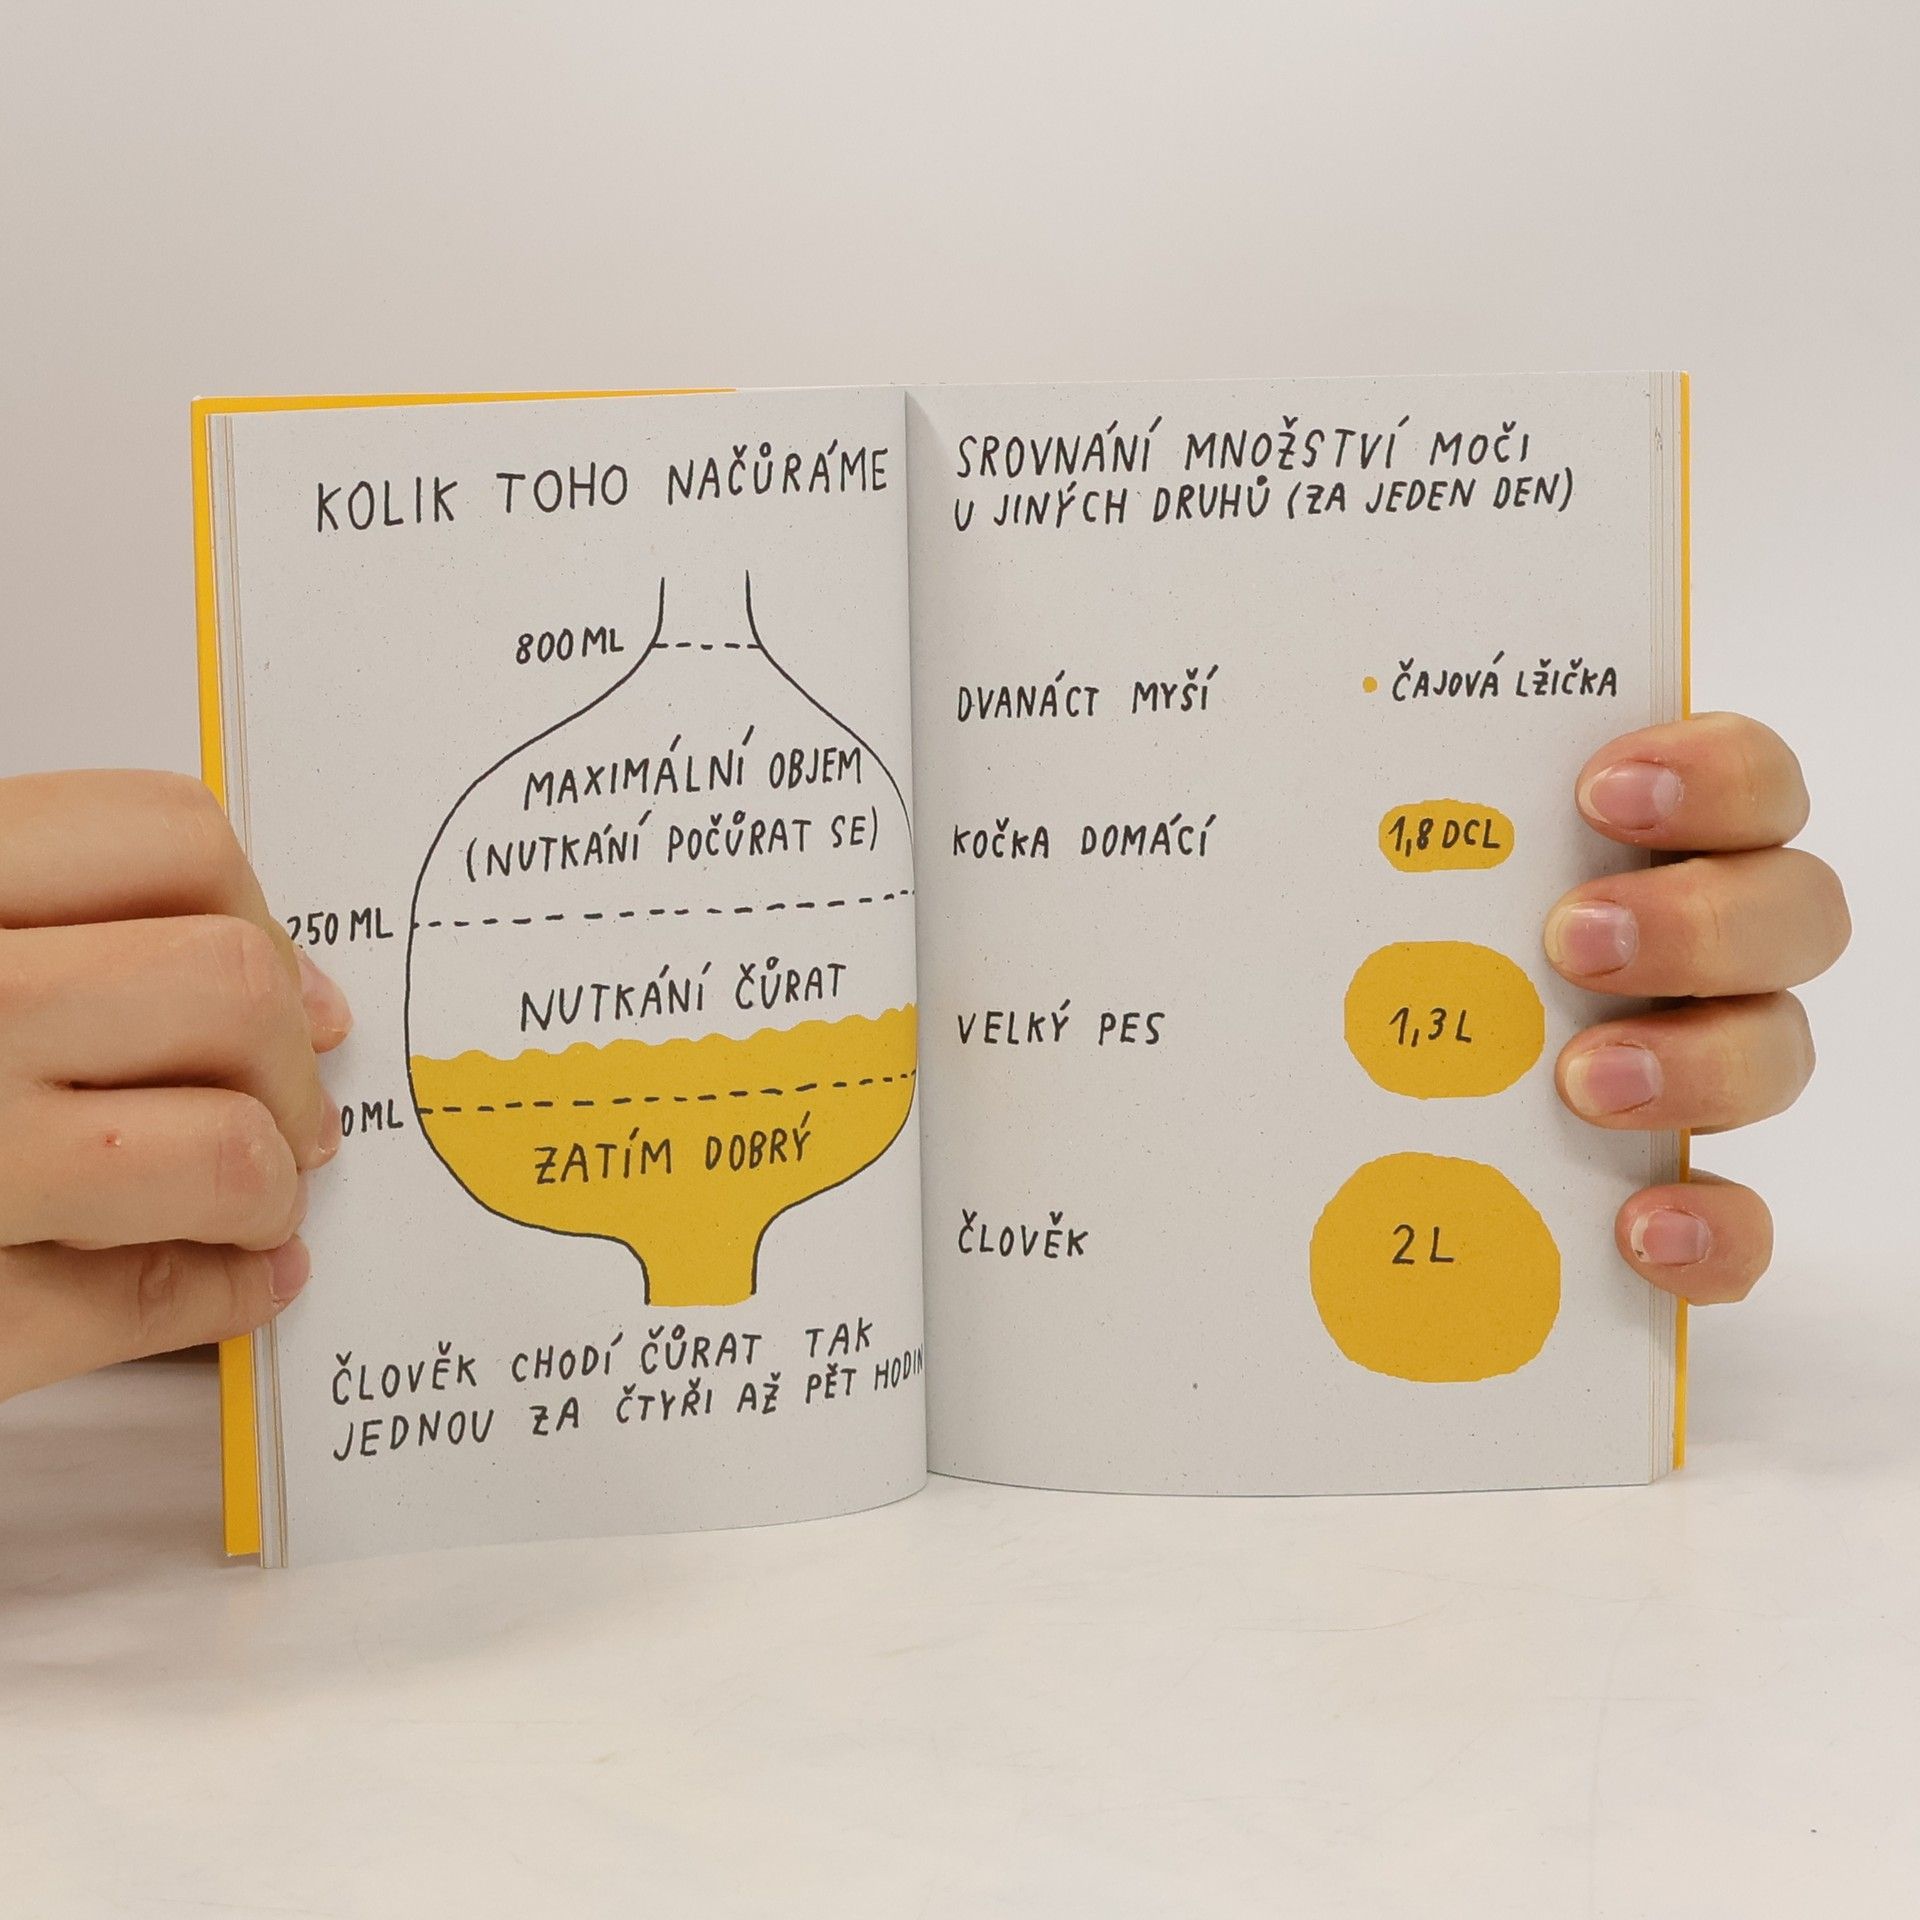 KOLIK TOHO NAČŮRÁME
800 ML
MAXIMÁLNÍ OBJEM
(NUTKÁNÍ POČŮRAT SE)
250 ML
NUTKÁNÍ ČŮRAT
ML
ZATÍM DOBRÝ
ČLOVĚK CHODÍ ČŮRAT TAK
JEDNOU ZA ČTYŘI AŽ PĚT HODIN
SROVNÁNÍ MNOŽSTVÍ MOČI
U JINÝCH DRUHŮ (ZA JEDEN DEN)
DVANÁCT MYŠÍ
ČAJOVÁ LŽIČKA
KOČKA DOMÁCÍ
1,8 DCL
VELKÝ PES
1,3 L
ČLOVĚK
2 L